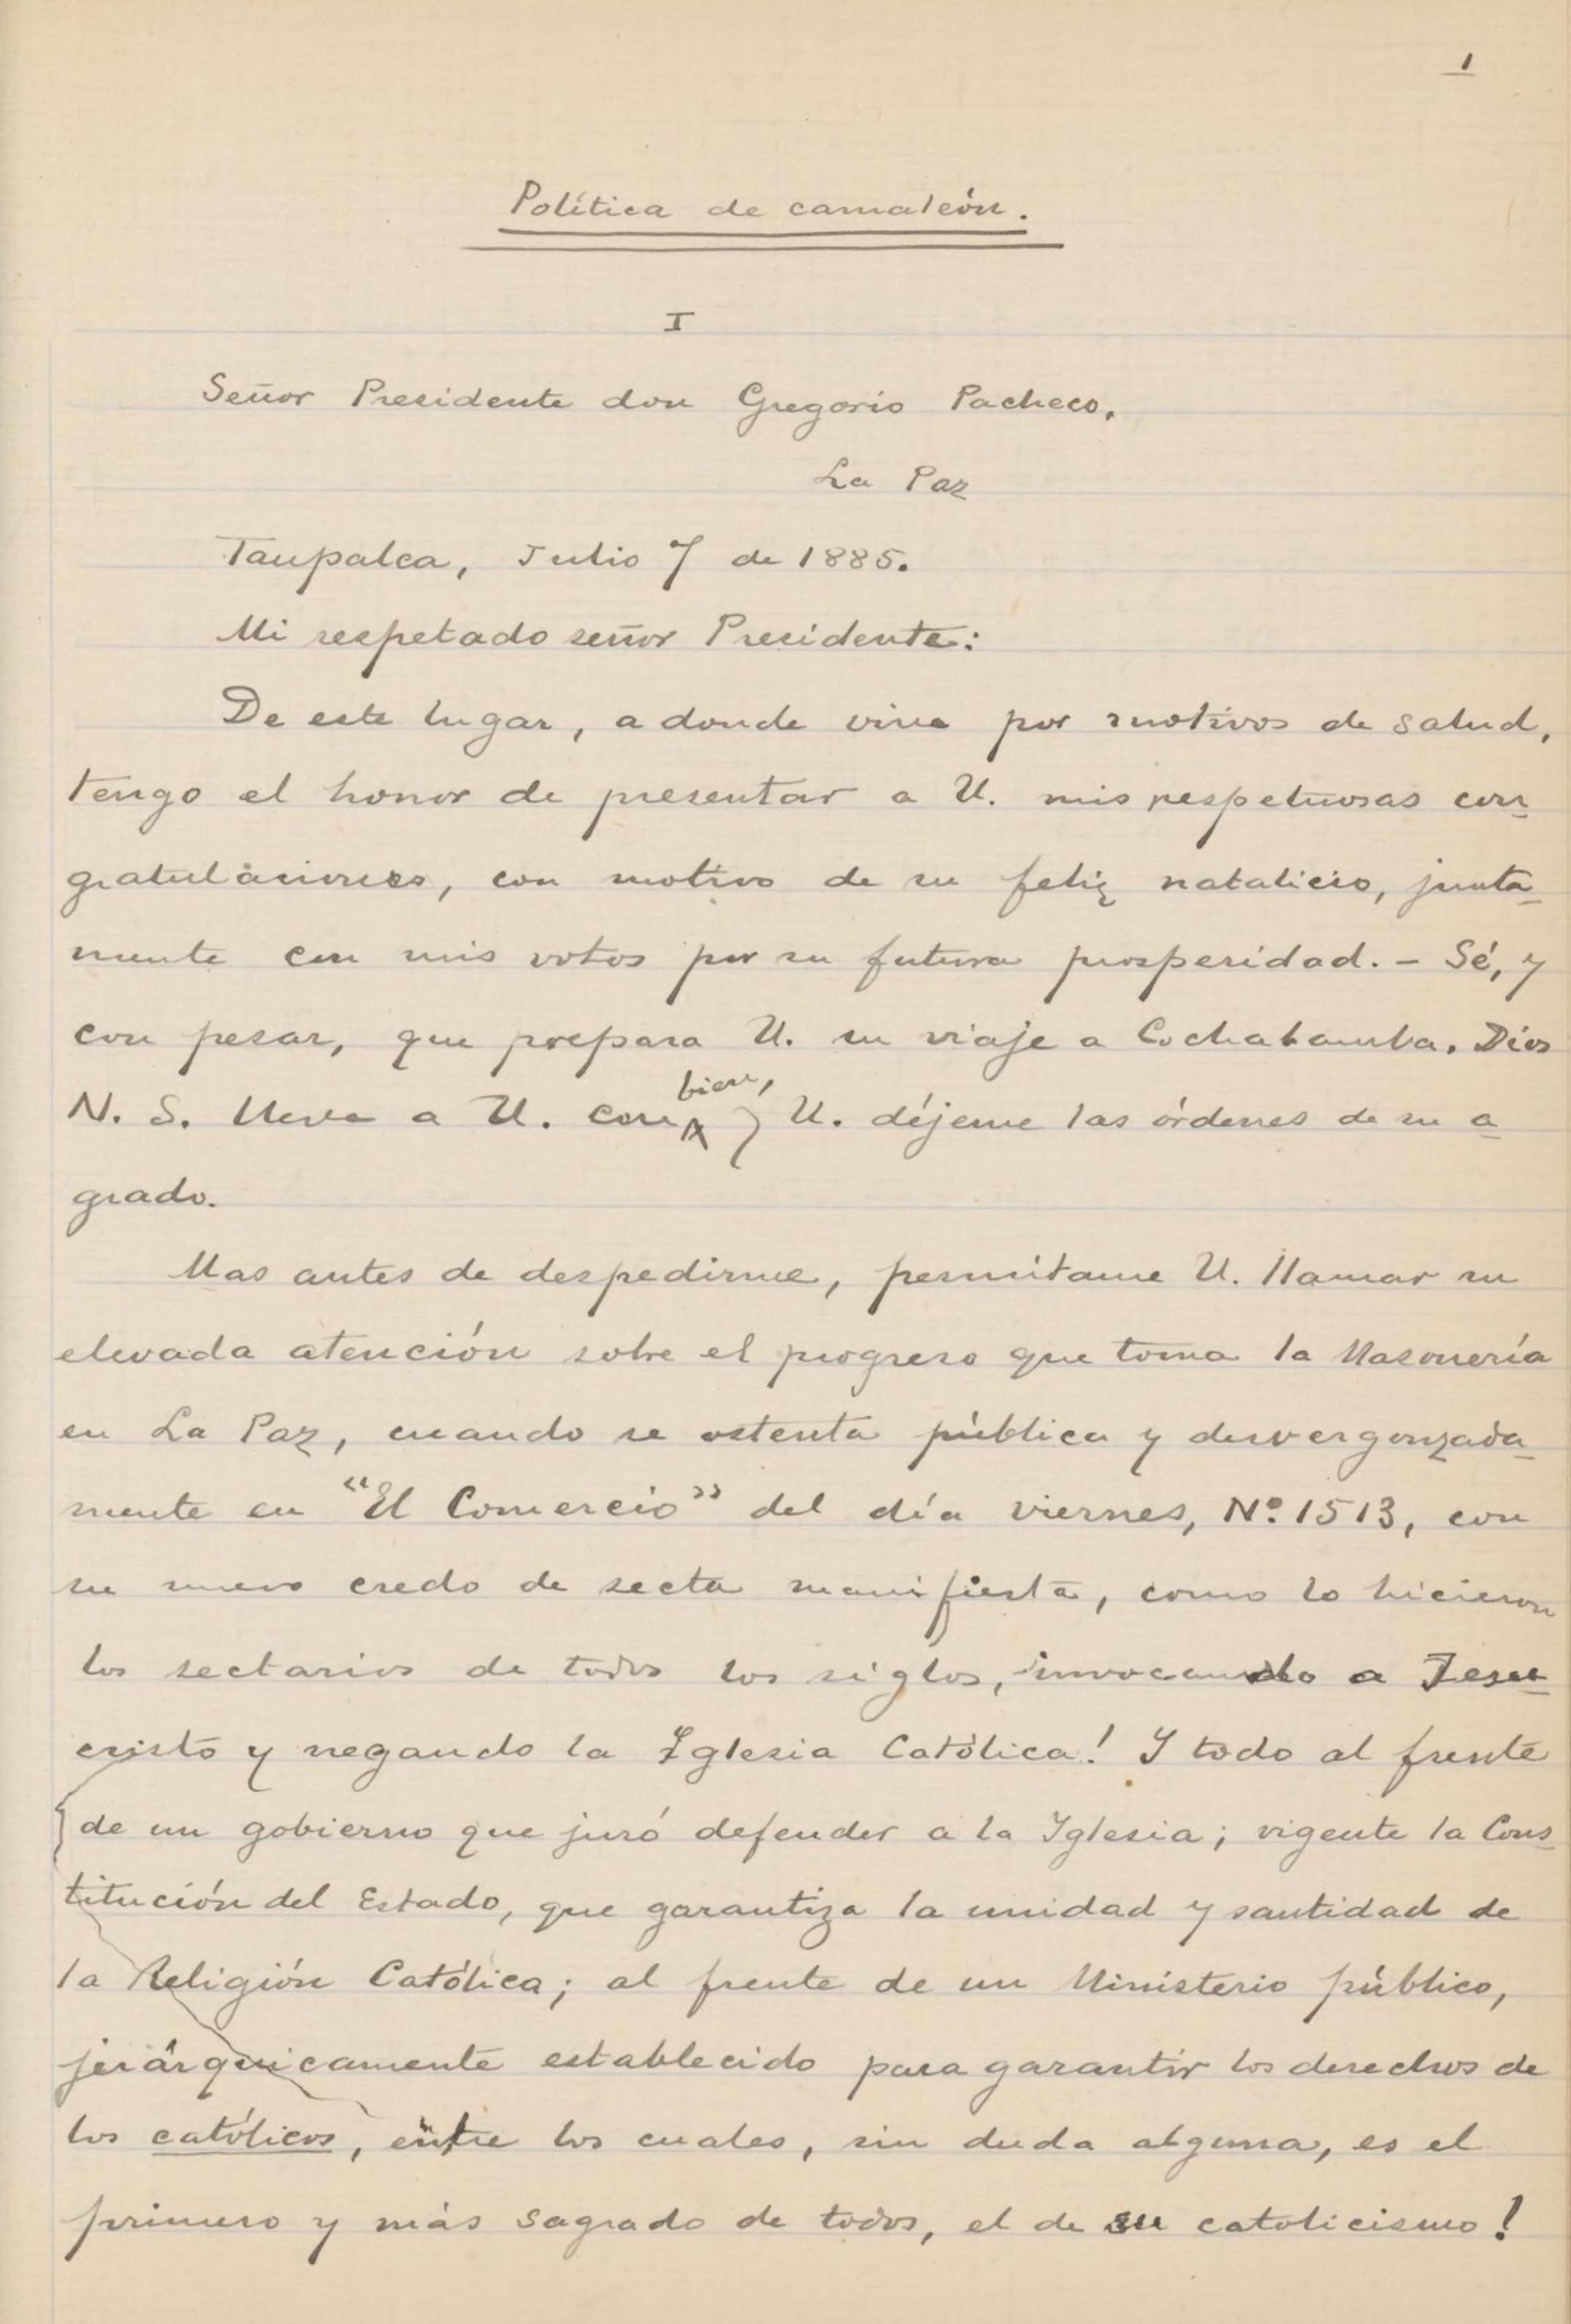 1
Política de camaleón.
I
Señor Presidente don Gregorio Pacheco.
La Paz
Taupalca, Julio 7 de 1885.
Mi respetado señor Presidente:
De este lugar, a donde vine por motivos de salud,
tengo el honor de presentar a U. mis respetuosas con-
gratulaciones, con motivo de su feliz natalicio, junta-
mente con mis votos por su futura prosperidad. - Sé, y
con pesar, que prepara U. su viaje a Cochabamba. Dios
N. S. lleve a U. con bien, y U. déjeme las órdenes de su a-
grado.
Mas antes de despedirme, permítame U. llamar su
elevada atención sobre el progreso que toma la Masonería
en La Paz, cuando se ostenta pública y desvergonzada-
mente en "El Comercio" del día viernes, Nº. 1513, con
su nuevo credo de secta manifiesta, como lo hicieron
los sectarios de todos los siglos, invocando a Jesu-
cristo y negando la Iglesia Católica! Y todo al frente
de un gobierno que juró defender a la Iglesia; vigente la Cons-
titución del Estado, que garantiza la unidad y santidad de
la Religión Católica; al frente de un Ministerio público,
jerárquicamente establecido para garantir los derechos de
los católicos, entre los cuales, sin duda alguna, es el
primero y más sagrado de todos, el de su catolicismo!